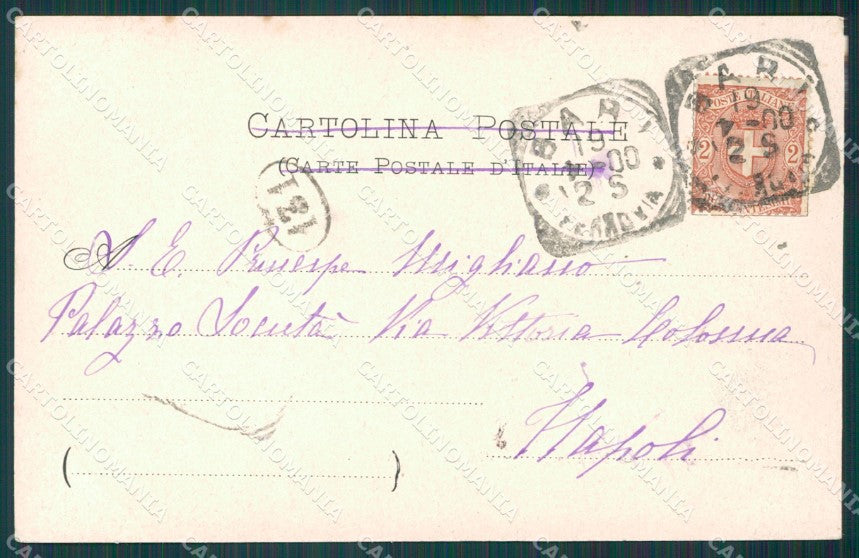 CARTOLINA POSTALE
(CARTE POSTALE D'ITALIE)
BARI
19
4-00
2 S
FERROVIA
BARI
19
4-00
2 S
POSTE ITALIANE
2 2
121
A S. E. Principe Migliano
Palazzo Società Via Vittoria Colonna
Napoli
CARTOLINOMANIA